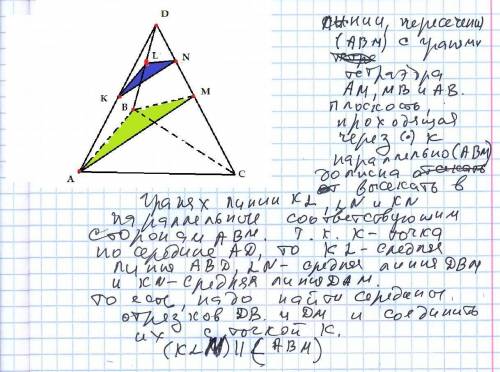 D
L
N
K
B
M
A
C
линии, пересечения
(ABM) с гранями
тетраэдра
AM, MB и AB.
Плоскость,
проходящая
через (·) K
параллельно (ABM)
должна
высекать в
гранях линии KL, LN и KN
параллельные соответствующим
сторонам ABM. Т.к. K - точка
по середине AD, то KL - средняя
линия ABD, LN - средняя линия DBM
и KN - средняя линия DAM.
То есть, надо найти середины
отрезков DB и DM и соединить
их с точкой K.
(KLN) || (ABM)